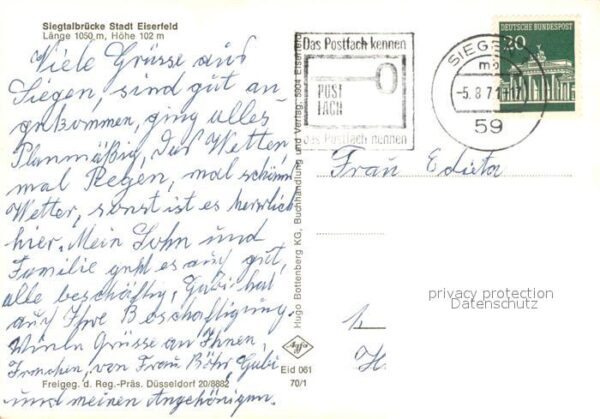 Siegtalbrücke Stadt Eiserfeld
Länge 1050 m, Höhe 102 m
Viele Grüsse aus
Siegen, sind gut an-
gekommen, ging alles
Planmäßig, Das Wetter,
mal Regen, mal schönes
Wetter, sonst ist es herrlich
hier. Mein Sohn und
Familie geht es auch gut,
alle beschäftig, Gabi hat
auch Ihre Beschaftigung.
Viele Grüsse an Ihnen,
von Frau Böhr, Gabi
und meinen Angehörigen.
Freigeg. d. Reg.-Präs. Düsseldorf 20/8882
Hugo Bottenberg KG, Buchhandlung und Verlag, 5904 Eiserfeld
Agfa
Eid 061
70/1
Das Postfach kennen
POST
FACH
das Postfach nennen
SIEGEN
-5.8.71-17
59
20
DEUTSCHE BUNDESPOST
Frau Edieta
privacy protection
Datenschutz